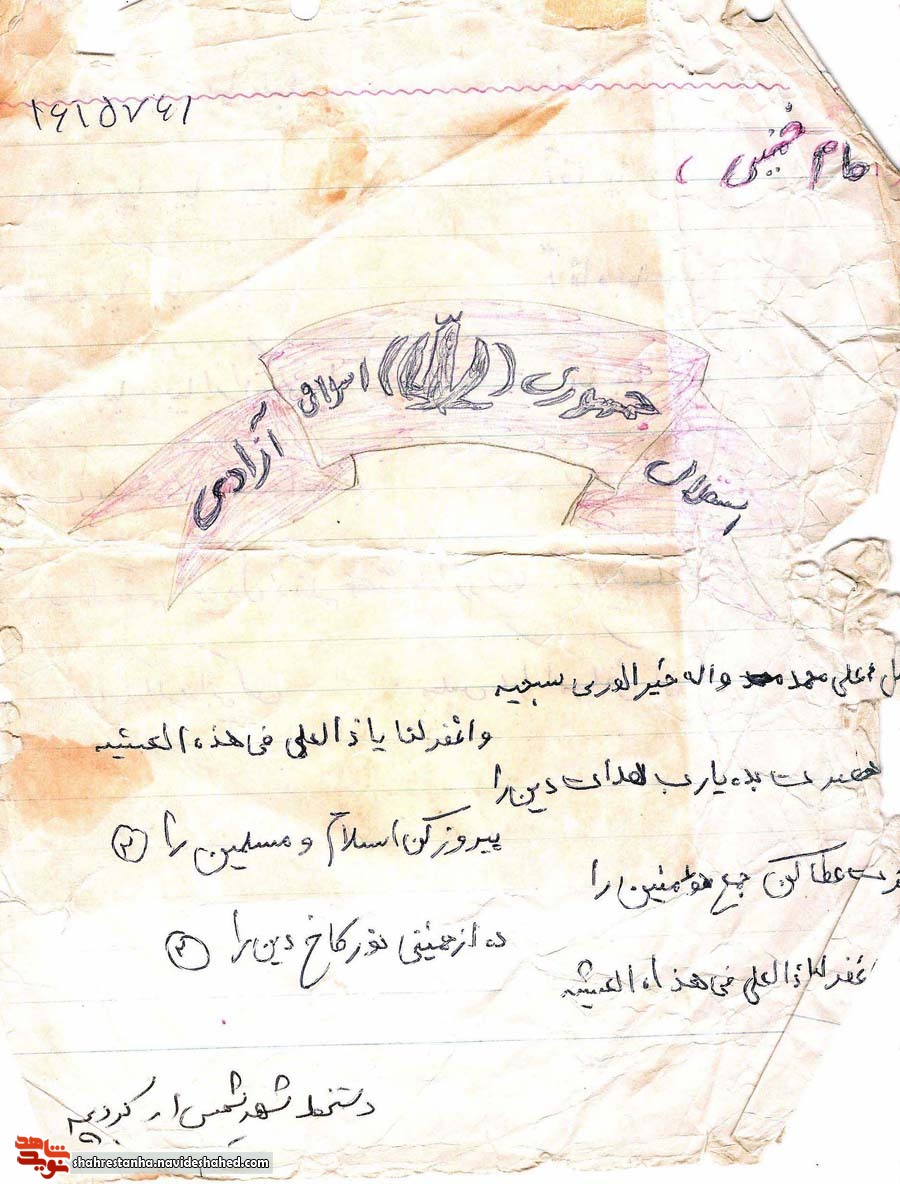 ۱۶۱۵۷۶۱
امام خمینی
جمهوری (الله) اسلامی
استقلال
آزادی
علی محمد واله خیر الوری سبحیه
واغفر لنا یا ذالعلی فی هذه العشیه
نصرت بده یارب هدات دین را
پیروز کن اسلام و مسلمین را ②
عطا کن جمع مؤمنین را
ده از خمینی نور کاخ دین را ②
ذالعلی فی هذه العشیه
دستخط شهید شمس ار
نوید شاهد
shahrestanha.navideshahed.com